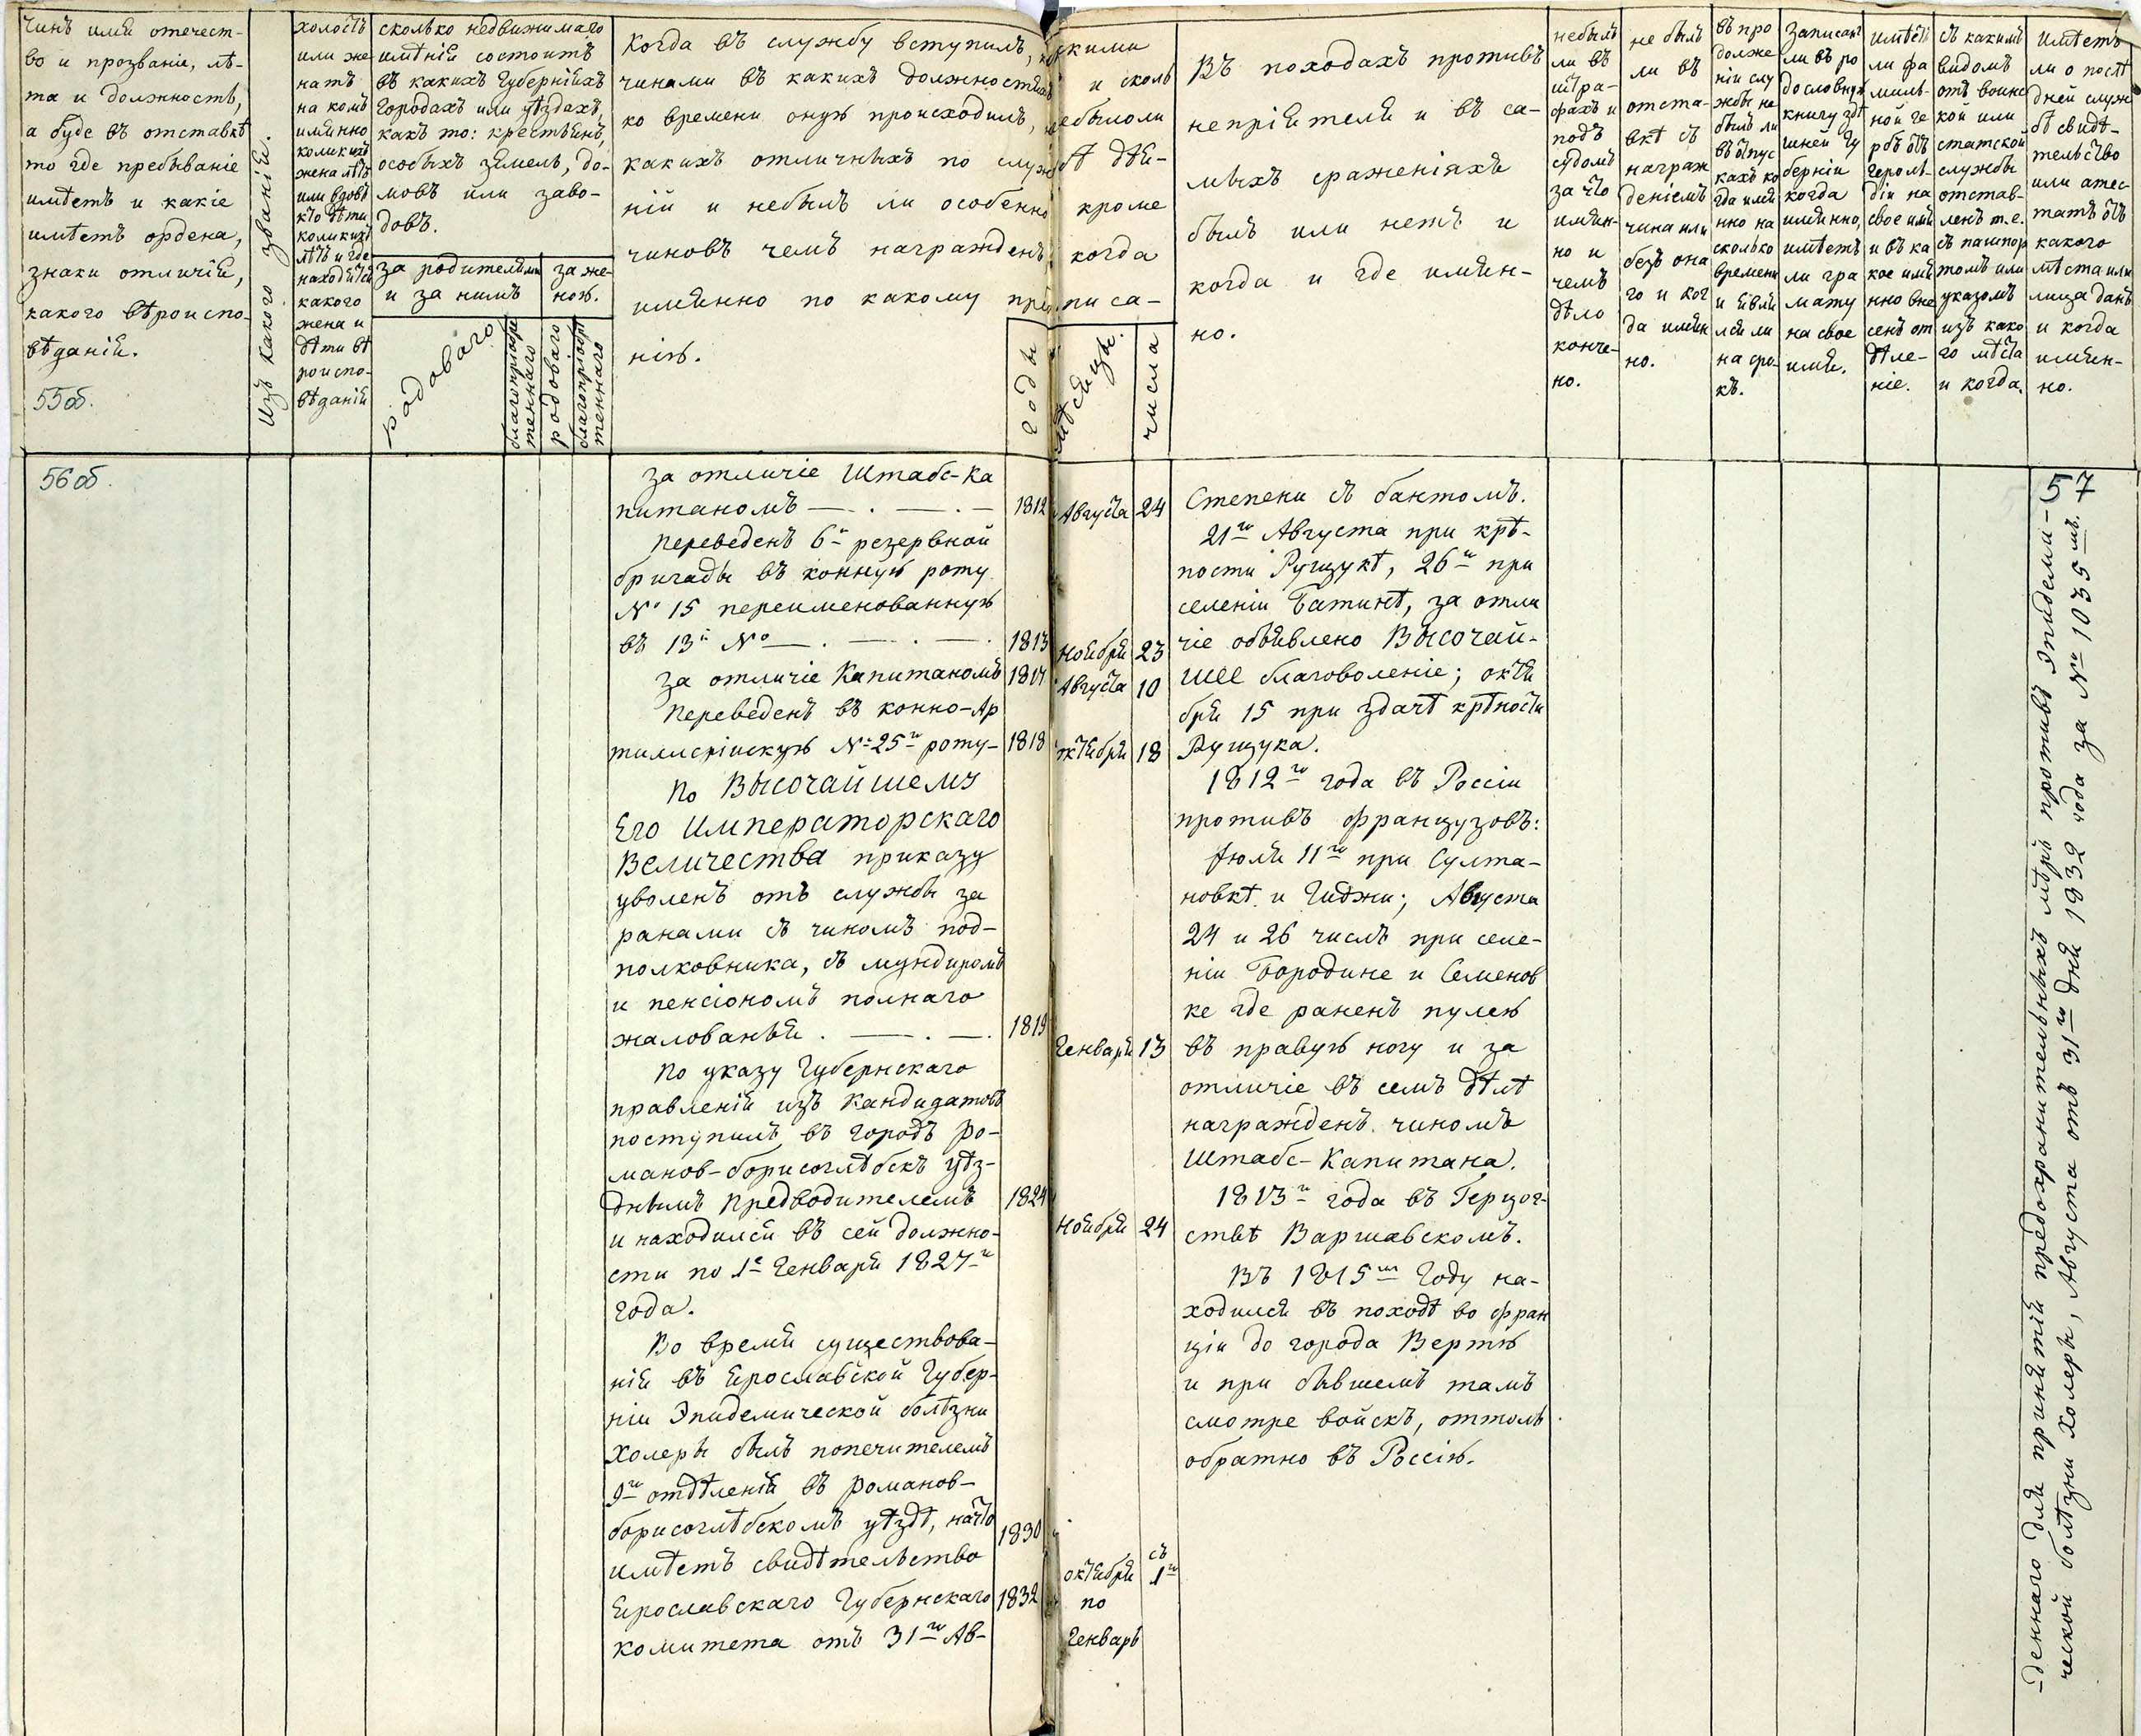 чинъ имя отечест-
во и прозваніе, лѣ-
та и должность,
а буде въ отставкѣ
то где пребываніе
имѣетъ и какіе
имѣетъ ордена,
знаки отличія,
какого вѣроиспо-
вѣданія.
55об.
Изъ какого званія.
холостъ
или же-
натъ
на комъ
имянно
коликихъ
жена лѣтъ
или вдовъ
кто дѣти
коликихъ
лѣтъ и где
находятся
какого
жена и
дѣти вѣ
роиспо-
вѣданія
сколько недвижимаго
имѣнія состоитъ
въ какихъ Губерніяхъ
городахъ или уѣздахъ,
какъ то: крестьянъ,
особыхъ земель, до-
мовъ или заво-
довъ.
за родителями
и за нимъ
за же-
ною.
родоваго
благопріобрѣ
теннаго
родоваго
благопріобрѣ
теннаго
Когда въ службу вступилъ,
чинами въ какихъ должностяхъ
ко времени оную происходилъ,
какихъ отличныхъ по служ
ній и небылъ ли особенно
чиновъ чемъ награжденъ
имянно по какому пре
нію.
годы
кими
и сколь
небылоли
бѣ дѣя-
кроме
когда
писа-
мѣсяцы.
числа
Въ походахъ противъ
непріятеля и въ са-
мыхъ сраженіяхъ
былъ или нетъ и
когда и где имян-
но.
небылъ
ли въ
штра-
фахъ и
подъ
судомъ
за что
имян-
но и
чемъ
дѣло
конче-
но.
не былъ
ли въ
отста-
вкѣ съ
награж
деніемъ
чина или
безъ она
го и ког
да имян
но.
въ про
долже
ніи слу
жбы не
былъ ли
въ отпус
кахъ ко
гда имя
нно на
сколько
времени
и явля
лся ли
на сро-
къ.
записанъ
ли въ ро
дословную
книгу здѣ
шней Гу
берніи
когда
имянно,
имѣетъ
ли гра
мату
на свое
имя.
имѣетъ
ли фа
миль-
ной ге
рбъ отъ
героль-
діи на
свое имя
и въ ка
кое имя
нно вне
сенъ от
дѣле-
ніе.
съ какимъ
видомъ
отъ воинс
кой или
статской
службы
отстав-
ленъ т.е.
съ пашпор
томъ или
указомъ
изъ како
го мѣста
и когда.
имѣетъ
ли о послѣ
дней служ
бѣ свидѣ-
тельство
или атес-
татъ отъ
какого
мѣста или
лица данъ
и когда
имян-
но.
56об.
за отличіе Штабс-ка
питаномъ — . — . — 1812 Августа 24
Переведенъ 6й резервной
бригады въ конную роту
№ 15 переименованную
въ 13й № — . — . — . 1813 Ноября 23
за отличіе Капитаномъ 1817 Августа 10
Переведенъ въ конно-Ар
тиллерійскую № 25ю роту- 1818 октября 18
По Высочайшему
Его Императорскаго
Величества приказу
уволенъ отъ службы за
ранами съ чиномъ под-
полковника, съ мундиромъ
и пенсіономъ полнаго
жалованья . — . — . 1819 Генваря 13
По указу Губернскаго
правленія изъ Кандидатовъ
поступилъ въ городъ Ро-
манов-борисоглѣбскъ уѣз-
днымъ Предводителемъ 1824 Ноября 24
и находился въ сей должно-
сти по 1е Генваря 1827го
года.
Во время существова-
нія въ Ярославской Губер-
ніи Эпидемической болѣзни
холеры былъ попечителемъ
9го отдѣленія въ Романов-
борисоглѣбскомъ уѣздѣ, на что 1830 октября съ 1го
имѣетъ свидѣтельство
Ярославскаго Губернскаго 1832 по
комитета отъ 31го Ав- Генварь
Степени съ бантомъ.
21го Августа при крѣ-
пости Рущукѣ, 26го при
селеніи Батинѣ, за отли
чіе объявлено Высочай-
шее благоволеніе; октя
бря 15 при здачѣ крѣпости
Рущука.
1812го года въ Россіи
противъ французовъ:
Іюля 11го при Султа-
новкѣ и Гиджи; Августа
24 и 26 числъ при селе-
ніи Бородине и Семенов
ке где раненъ пулею
въ правую ногу и за
отличіе въ семъ дѣлѣ
награжденъ чиномъ
Штабс-Капитана.
1813го года въ Герцог-
ствѣ Варшавскомъ.
Въ 1815мъ Году на-
ходился въ походѣ во фран
ціи до города Вертю
и при бывшемъ тамъ
смотре войскъ, оттоль
обратно въ Россію.
57
-деннаго для принятія предохранительныхъ мѣръ противъ Эпидеми-
ческой болѣзни холеры, Августа отъ 31го дня 1832 года за № 1035мъ.